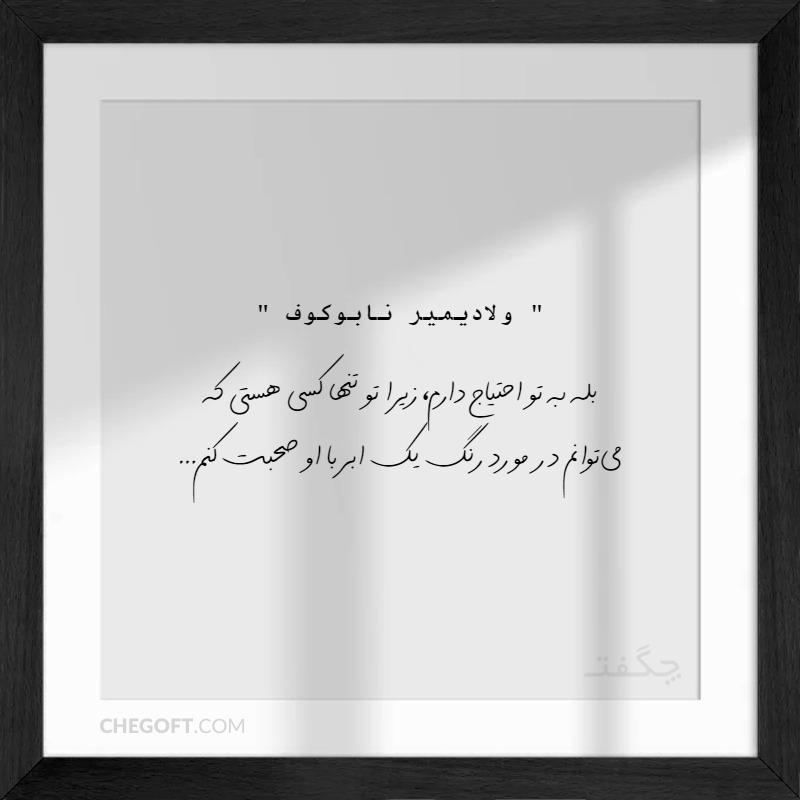 " ولادیمیر نابوکوف "
بله به تو احتیاج دارم، زیرا تو تنها کسی هستی که
می‌توانم در مورد رنگ یک ابر با او صحبت کنم...
چگفت
CHEGOFT.COM